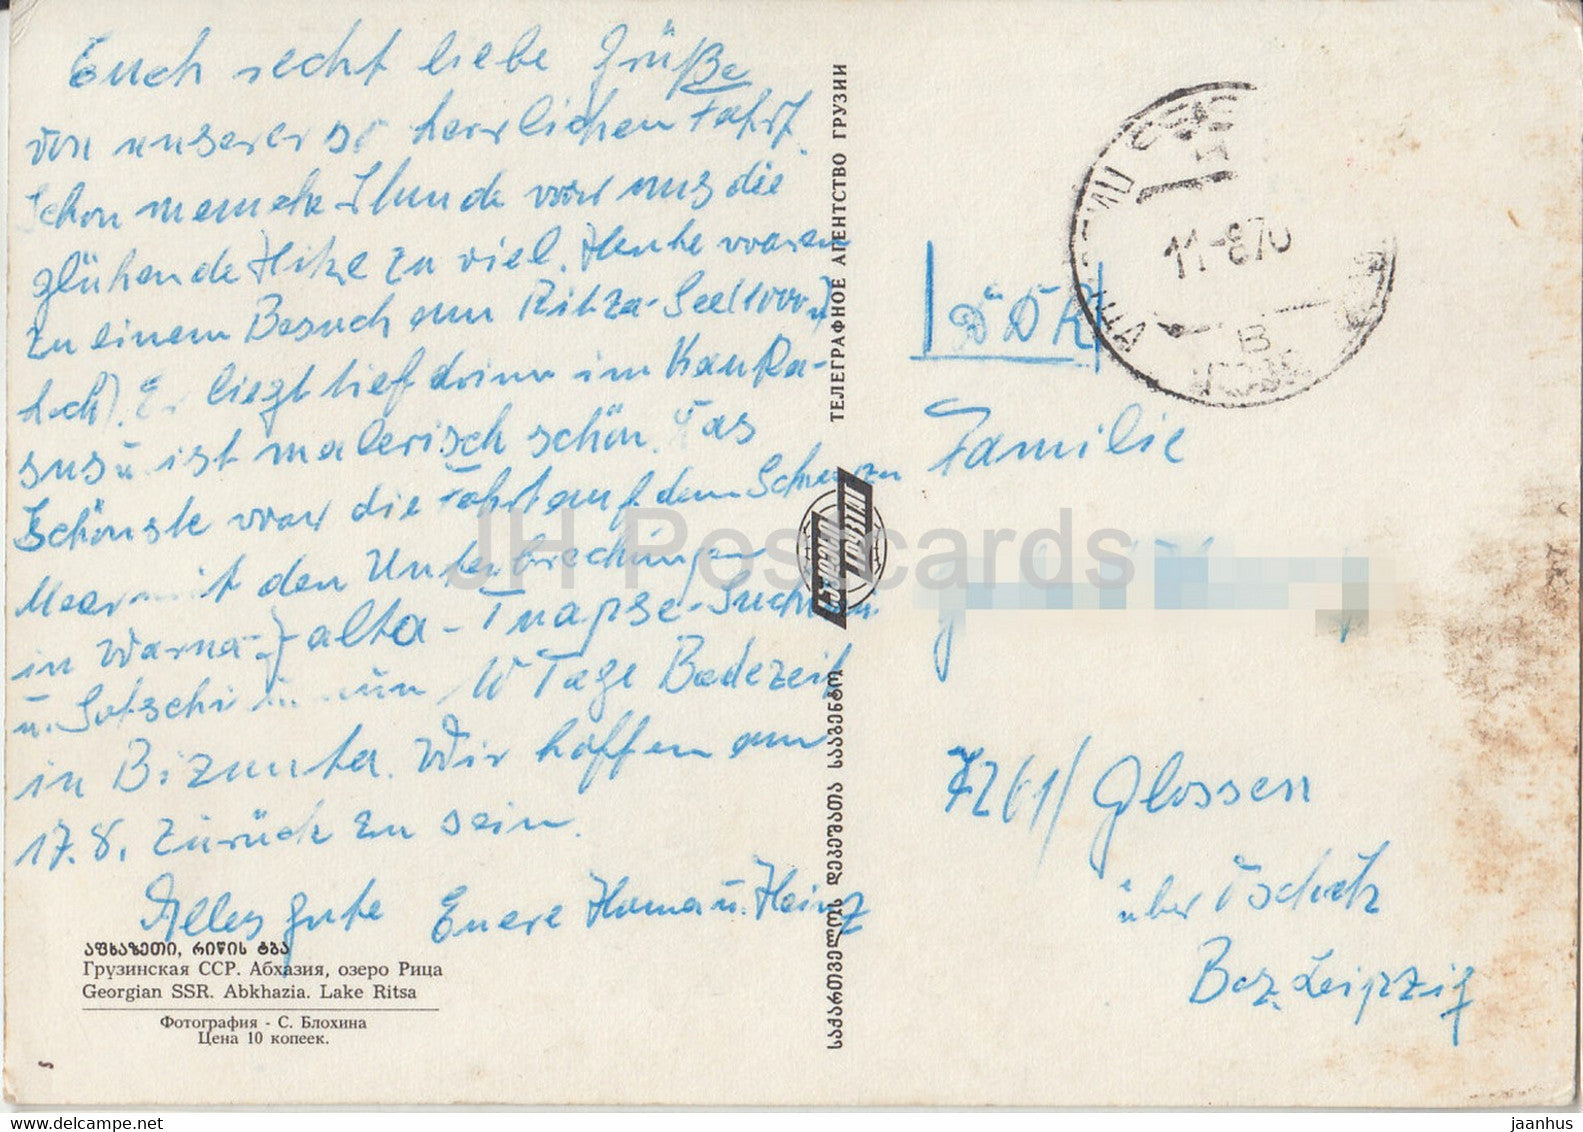 Euch recht liebe Grüße
von unserer so herrlichen Fahrt.
Schon manche Stunde war uns die
glühende Hitze zu viel. Heute waren
zu einem Besuch am Ritza-See (1000 m
hoch). Er liegt tief drinn im Kauka-
sus u. ist malerisch schön. Das
Schönste war die Fahrt auf dem Schwarzen
Meer mit den Unterbrechungen
in Warna-Jalta-Tuapse-Suchumi
u. Sotschi nun 10 Tage Badezeit
in Bizunta. Wir hoffen am
17.8. zurück zu sein.
Alles gute Euere Hanna u. Heinz
აფხაზეთი, რიწის ტბა
Грузинская ССР. Абхазия, озеро Рица
Georgian SSR. Abkhazia. Lake Ritsa
Фотография - С. Блохина
Цена 10 копеек.
ТЕЛЕГРАФНОЕ АГЕНТСТВО ГРУЗИИ
საქართველოს დეპეშათა სააგენტო
11-870
DDR
Familie
7261/Glossen
über Oschatz
Bez. Leipzig
JH Postcards
www.delcampe.net
jaanhus